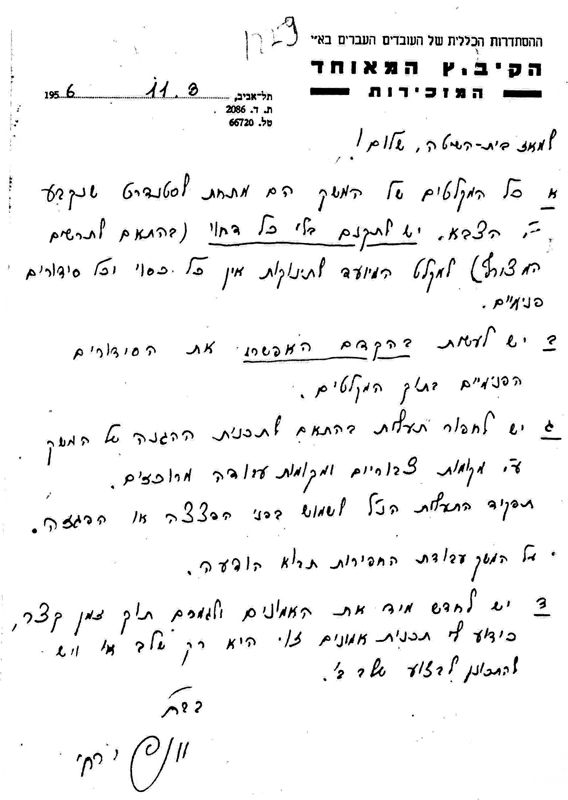 ההסתדרות הכללית של העובדים העברים בא"י
הקיבוץ המאוחד
המזכירות
תל-אביב, 11.3 1956
ת. ד. 2086
טל. 66720
בית-השיטה, שלום!
א כל המקלטים של המשק הם מתחת לסטנדרט שנקבע
ע"י הצבא. יש לתקנם בלי כל דחוי (בהתאם לתרשים
המצורף) למקלט המיועד לתינוקות אין כל כסוי וכל סידורים
פנימיים.
ב יש לעשות בהקדם האפשרי את הסידורים
הפנימיים בתוך המקלטים.
ג יש לחפור תעלות בהתאם לתכנית ההגנה של המשק
ע"י מקומות צבוריים ומקומות עבודה מרוכזים.
תפקיד התעלות הנ"ל לשמוש בפני הפצצה או הפגזה.
על המשך עבודת החפירות תבוא הודעה.
ד יש לחדש מיד את האמונים ולגמרם תוך זמן קצר,
כידוע לך תכנית אמונים זו היא רק שלב א' ויש
להתכונן לבצוע שלב ב'.